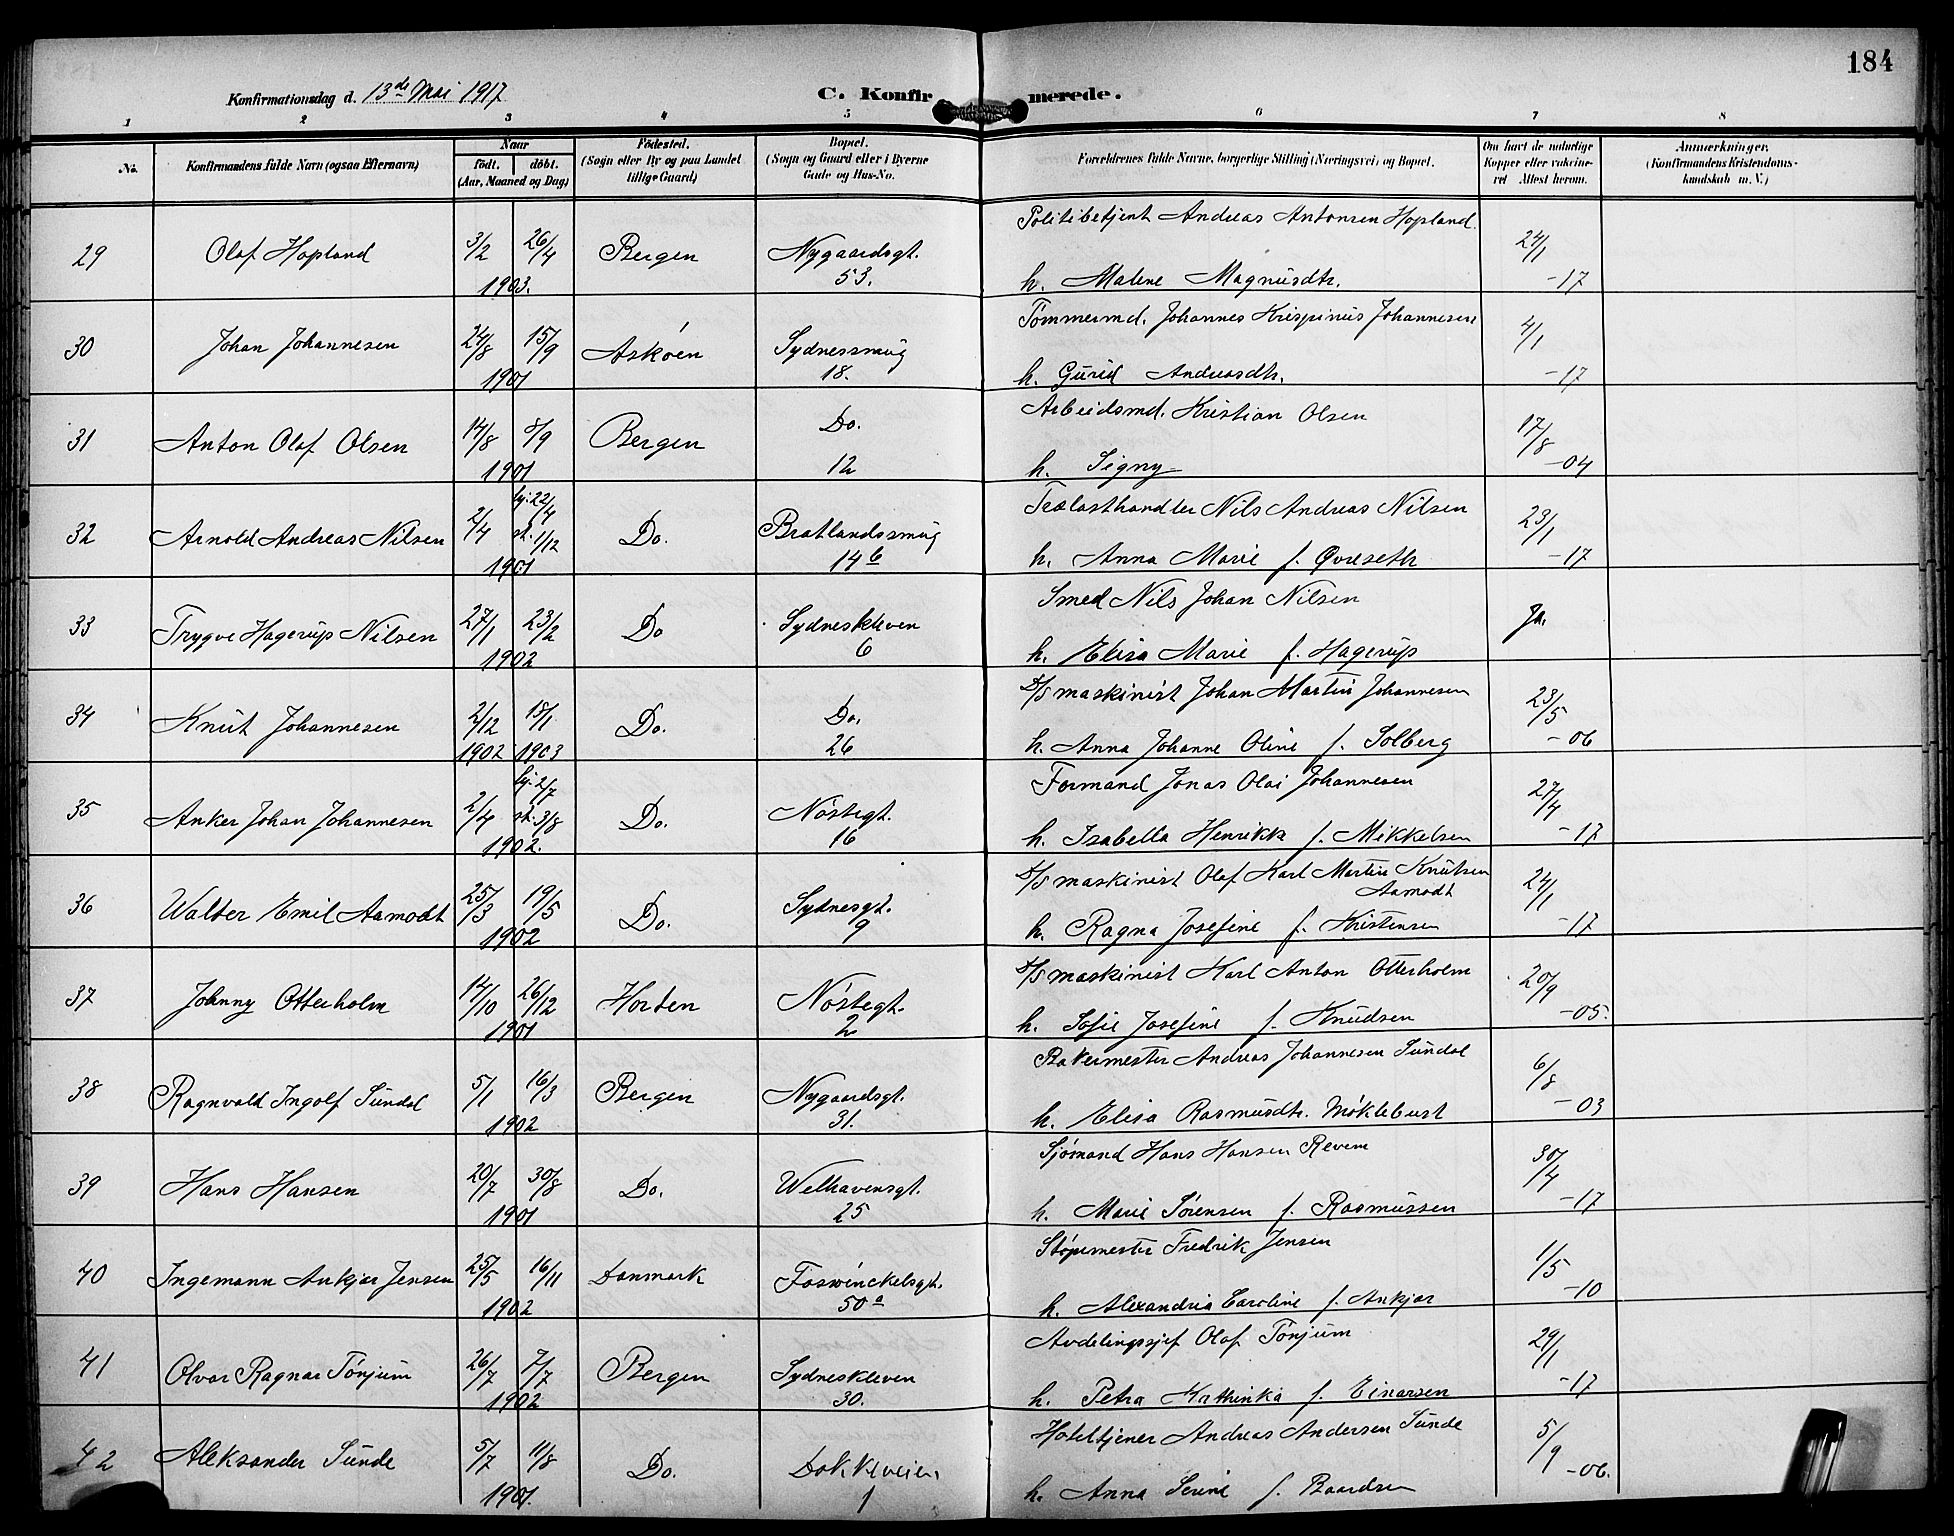 184
Konfirmationsdag d. 13de Mai 1917
C. Konfirmerede.
1 2 3 4 5 6 7 8
No. Konfirmandens fulde Navn (ogsaa Efternavn) Naar født. døbt. (Aar, Maaned og Dag) Fødested. (Sogn eller By og paa Landet tillige Gaard) Bopæl. (Sogn og Gaard eller i Byerne Gade og Hus-No. Forældrenes fulde Navne, borgerlige Stilling (Næringsvei) og Bopæl. Om havt de naturlige Kopper eller vakcineret Attest herom. Anmærkninger. (Konfirmandens Kristendomskundskab m. V.)
Politibetjent Andreas Antonsen Hopland.
29 Olaf Hopland 3/2 26/4 Bergen Nygaardsgt. 24/1
1903. 53. h. Malene Magnusdtr. -17
Tømmermd. Johannes Krispinus Johannesen
30 Johan Johannesen 24/8 15/9 Askøen Sydnessmug 4/1
1901 18. h. Gurid Andreasdtr. -17
Arbeidsmd. Kristian Olsen
31 Anton Olaf Olsen 14/8 8/9 Bergen Do. 17/8
1901 12 h. Signy -04
hj. 22/4 Nils Andreas Nilsen
32 Arnold Andreas Nilsen 2/4 st. 1/12 Do. Bratlandssmug 23/1
1901 14 b h. Anna Marie f. Øvreseth -17
Smed Nils Johan Nilsen
33 Trygve Hagerup Nilsen 27/1 23/2 Do Sydneskleven Ja.
1902 6 h. Elisa Marie f. Hagerup
D/S maskinist Johan Martin Johannesen
34 Knut Johannesen 2/12 18/1 Do. Do. 23/5
1902 1903 26 h. Anna Johanne Oline f. Solberg -06
hj. 2/7 Formand Jonas Olai Johannesen
35 Anker Johan Johannesen 2/4 st. 3/8 Do. Nøstegt. 27/4
1902. 16 h. Isabella Henrikka f. Mikkelsen -17
D/S maskinist Olaf Karl Martin Knutsen Aamodt
36 Walter Emil Aamodt 25/3 19/5 Do. Sydnesgt. 24/1
1902 9 h. Ragna Josefine f. Kristensen -17
D/S maskinist Karl Anton Otterholm
37 Johnny Otterholm 14/10 26/12 Horten Nøstegt. 20/9
1901 2 h. Sofie Josefine f. Knudsen -05.
Bakermester Andreas Johannesen Sundal
38 Ragnvald Ingolf Sundal 5/1 16/3 Bergen Nygaardsgt. 6/8
1902 31. h. Elisa Rasmusdtr. Møklebust -03
Sjømand Hans Hansen Revem
39 Hans Hansen 20/7 30/8 Do. Welhavensgt. 30/4
1901 25 h. Marie Sørensen f. Rasmussen -17
Støpemester Fredrik Jensen
40 Ingemann Ankjær Jensen 25/5 16/11 Danmark Foswinckelsgt. 1/5
1902 50 a h. Alexandria Caroline f. Ankjær -10
Avdelingssjef Olaf Tønjum
41 Olvar Ragnar Tønjum 26/7 7/7 Bergen Sydneskleven 29/1
1902 30. h. Petra Kathinka f. Einarsen -17
Hoteltjener Andreas Andersen Sunde
42 Aleksander Sunde 5/7 11/8 Do. Dokkeveien 5/9
1901. 1 h. Anna Serine f. Baardsen -06.